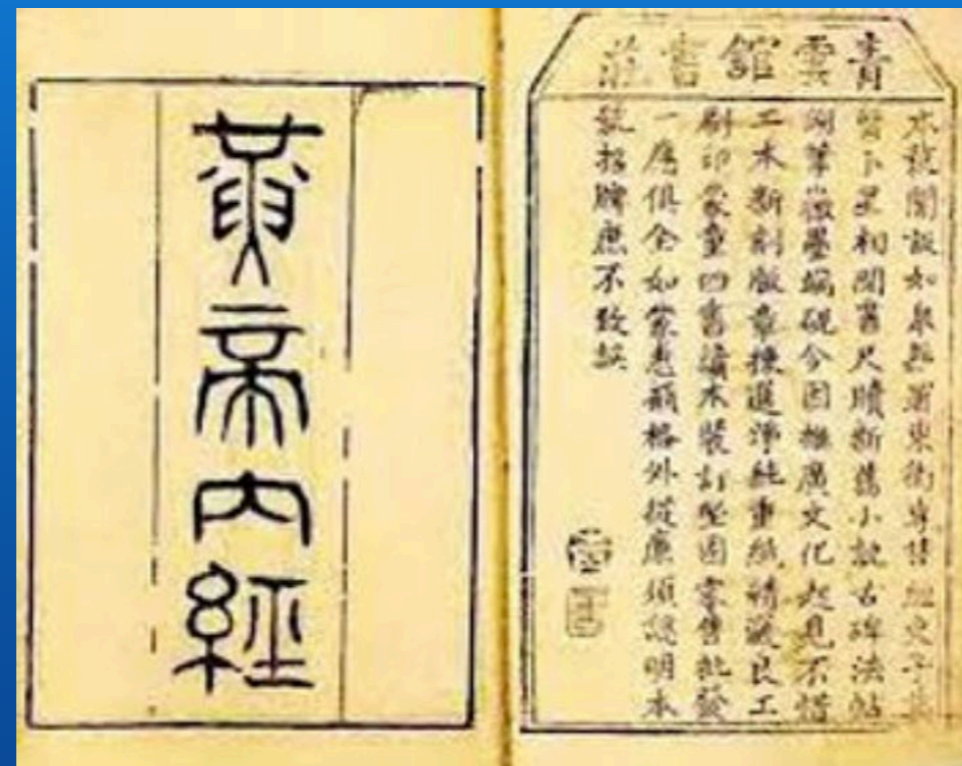 青雲館書莊
本號開設如泉縣署東街專售經史子集
醫卜星相閒書尺牘新舊小說古碑法帖
湖筆徽墨端硯今因推廣文化起見不惜
工本新刻版章揀選淨純重紙精選良工
刷印蒙童四書讀本裝訂堅固零售批發
一應俱全如蒙惠顧格外從廉須認明本
號招牌庶不致誤
黃帝內經